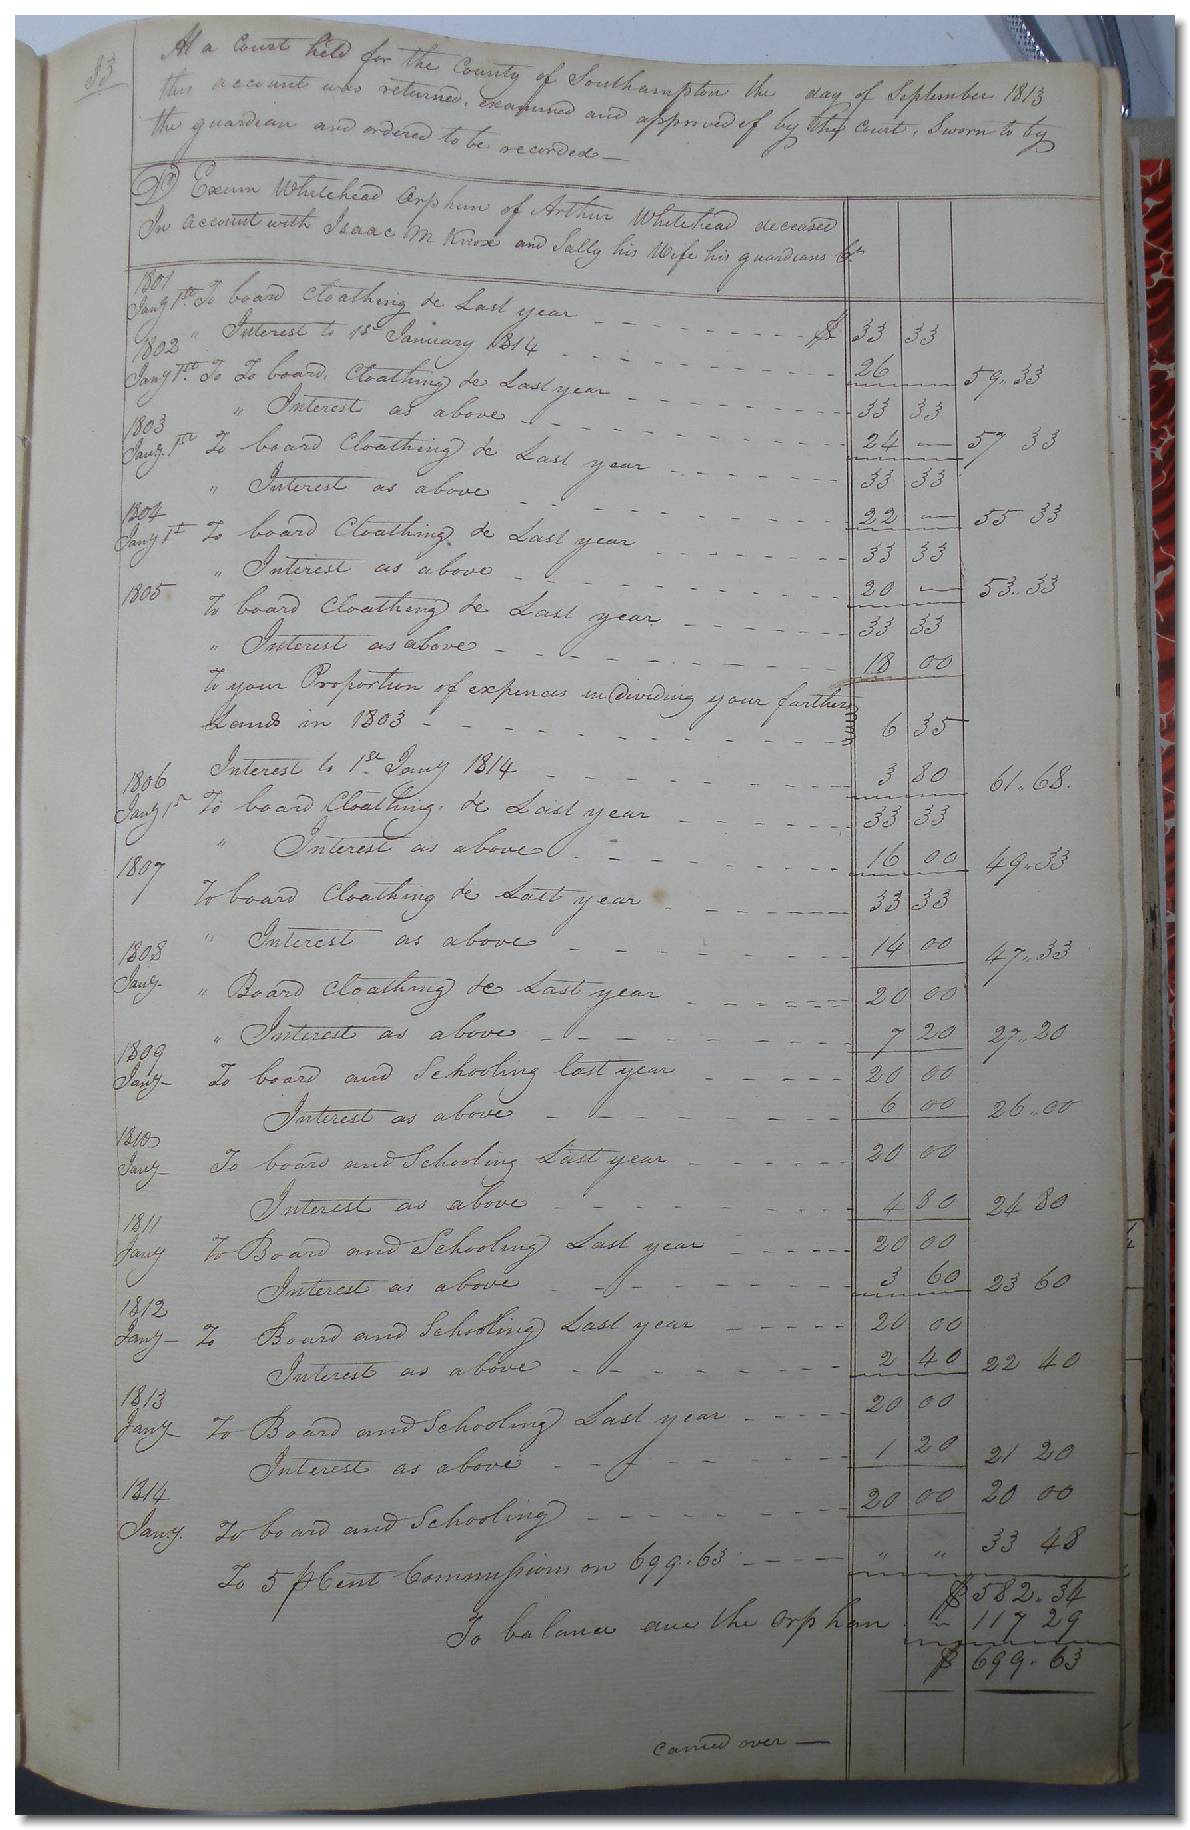 83
At a Court held for the County of Southampton the day of September 1813
this account was returned, examined and approved of by the Court, Sworn to by
the guardian and ordered to be recorded —
Dr Exum Whitehead Orphan of Arthur Whitehead deceased
In Account with Isaac M Knox and Sally his Wife his guardians Cr.
1801
Jany 1st. To board Cloathing &c Last year $ 33 33
" Interest to 1st January 1814 26 59.. 33
1802
Jany 1st. To To board, Cloathing &c Last year 33 33
" Interest as above 24 — 57 33
1803
Jany. 1st To board Cloathing &c Last year 33 33
" Interest as above 22 — 55 33
1804
Jany 1st To board Cloathing &c Last year 33 33
" Interest as above 20 — 53.. 33
1805
To board Cloathing &c Last year 33 33
" Interest as above 18 00
To your Proportion of expences in dividing your farthers
Lands in 1803 - 6 35
Interest to 1st. Jany 1814 3 80 61.. 68.
1806
Jany 1st To board Cloathing. &c Last year 33 33
" Interest as above 16 00 49.. 33
1807
To board Cloathing &c Last year 33 33
" Interest as above 14 00 47.. 33
1808
Jany. " Board Cloathing &c Last year 20 00
" Interest as above 7 20 27.. 20
1809
Jany — To board and Schooling last year 20 00
Interest as above 6 00 26.. 00
1810
Jany — To board and Schooling Last year 20 00
Interest as above 4 80 24 80
1811
Jany To Board and Schooling Last year 20 00
Interest as above 3 60 23 60
1812
Jany — To Board and Schooling Last year 20 00
Interest as above 2 40 22 40
1813
Jany — To Board and Schooling Last year 20 00
Interest as above 1 20 21 20
1814
Jany. To board and Schooling 20 00 20 00
To 5 pCent Commission on 699..63 " " 33 48
$ 582.. 34
To balance due the Orphan " 117 29
$ 699.. 63
carried over —